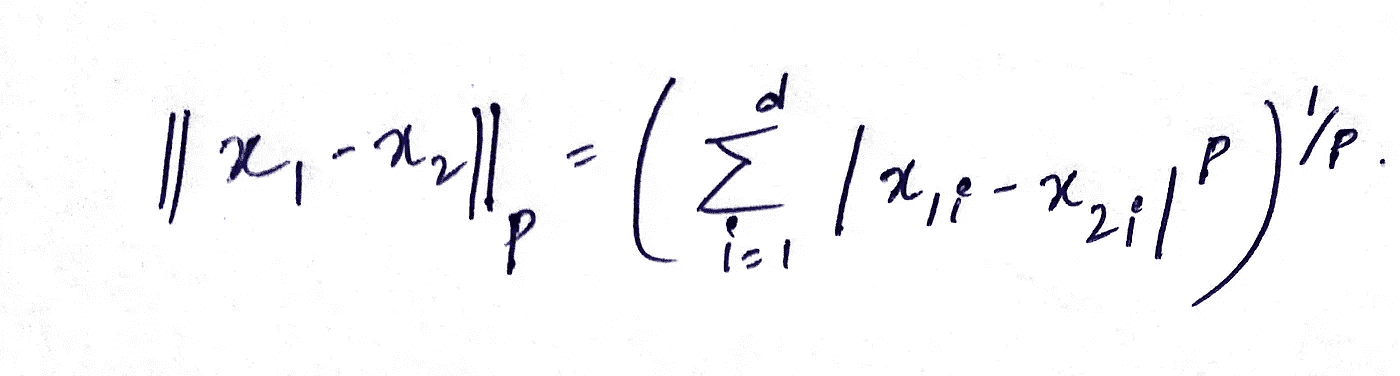 ‖x₁ - x₂‖ₚ = (∑ᵢ₌₁ᵈ |x₁ᵢ - x₂ᵢ|ᵖ)^{1/p}.